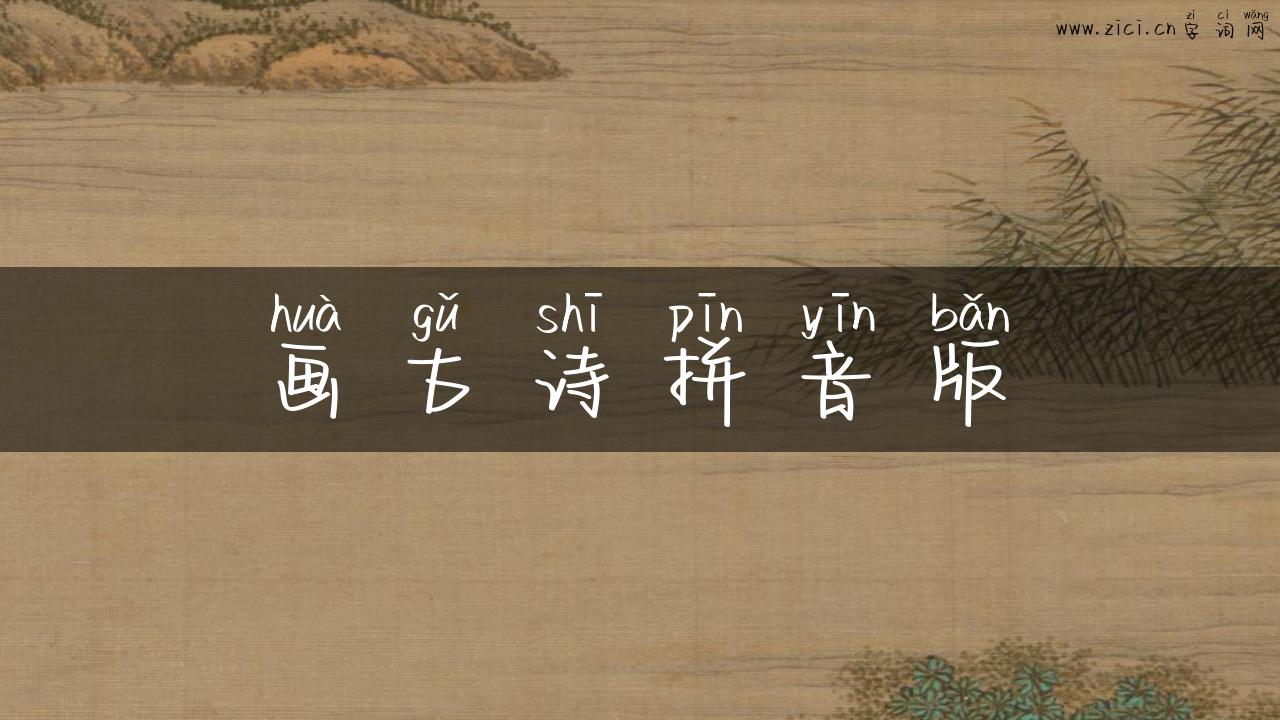 zì cí wǎng
www.zici.cn 字 词 网
huà gǔ shī pīn yīn bǎn
画 古 诗 拼 音 版